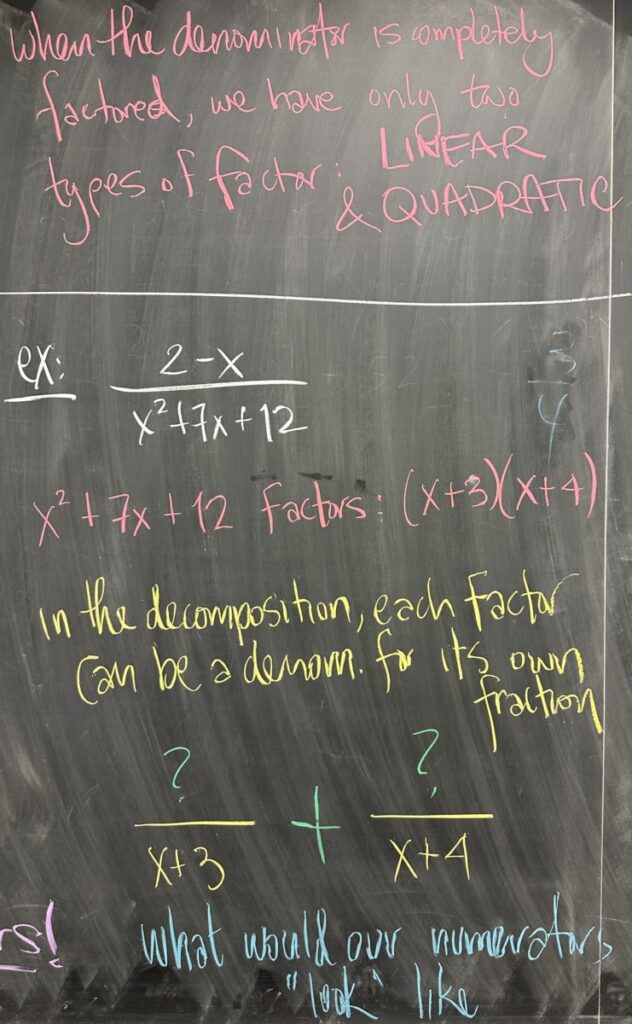 When the denominator is completely
factored, we have only two
types of factor: LINEAR
& QUADRATIC
ex: 2-x
x²+7x+12
3
4
x²+7x+12 Factors: (x+3)(x+4)
in the decomposition, each factor
can be a denom. for it's own
fraction
? ?
+
x+3 x+4
rs!
What would our numerators
"look" like